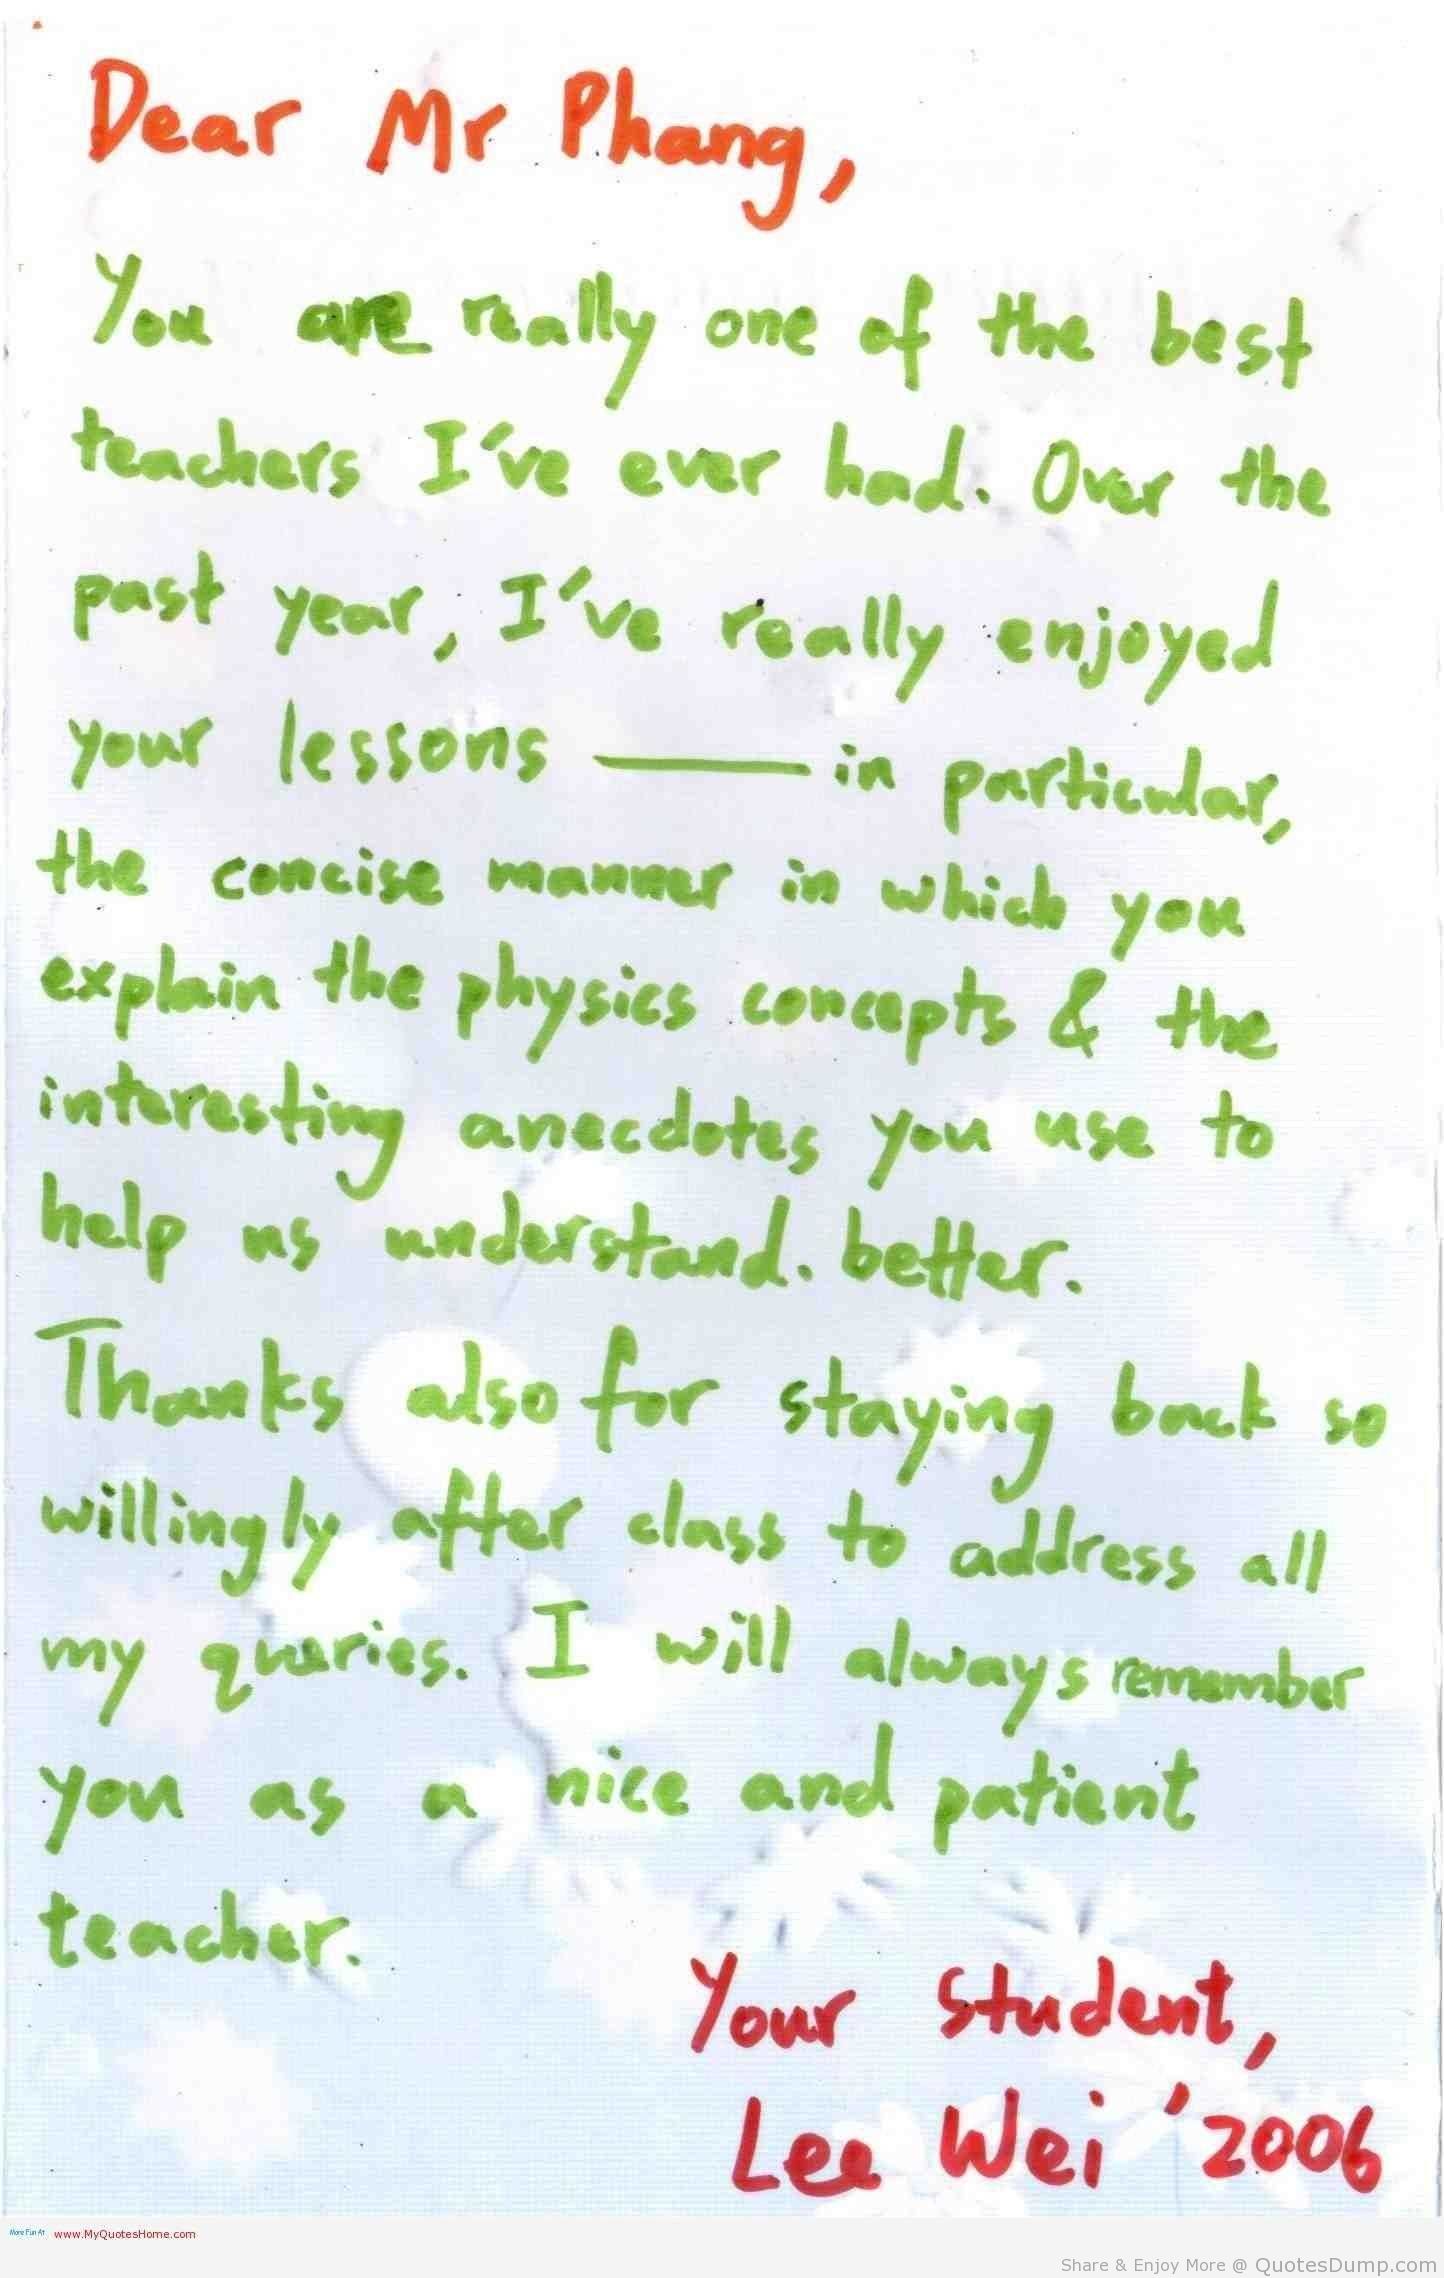 Dear Mr Phang,
You are really one of the best
teachers I've ever had. Over the
past year, I've really enjoyed
your lessons — in particular,
the concise manner in which you
explain the physics concepts & the
interesting anecdotes you use to
help us understand. better.
Thanks also for staying back so
willingly after class to address all
my queries. I will always remember
you as a nice and patient
teacher.
Your student,
Lee Wei '2006
More Fun At www.MyQuotesHome.com
Share & Enjoy More @ QuotesDump.com